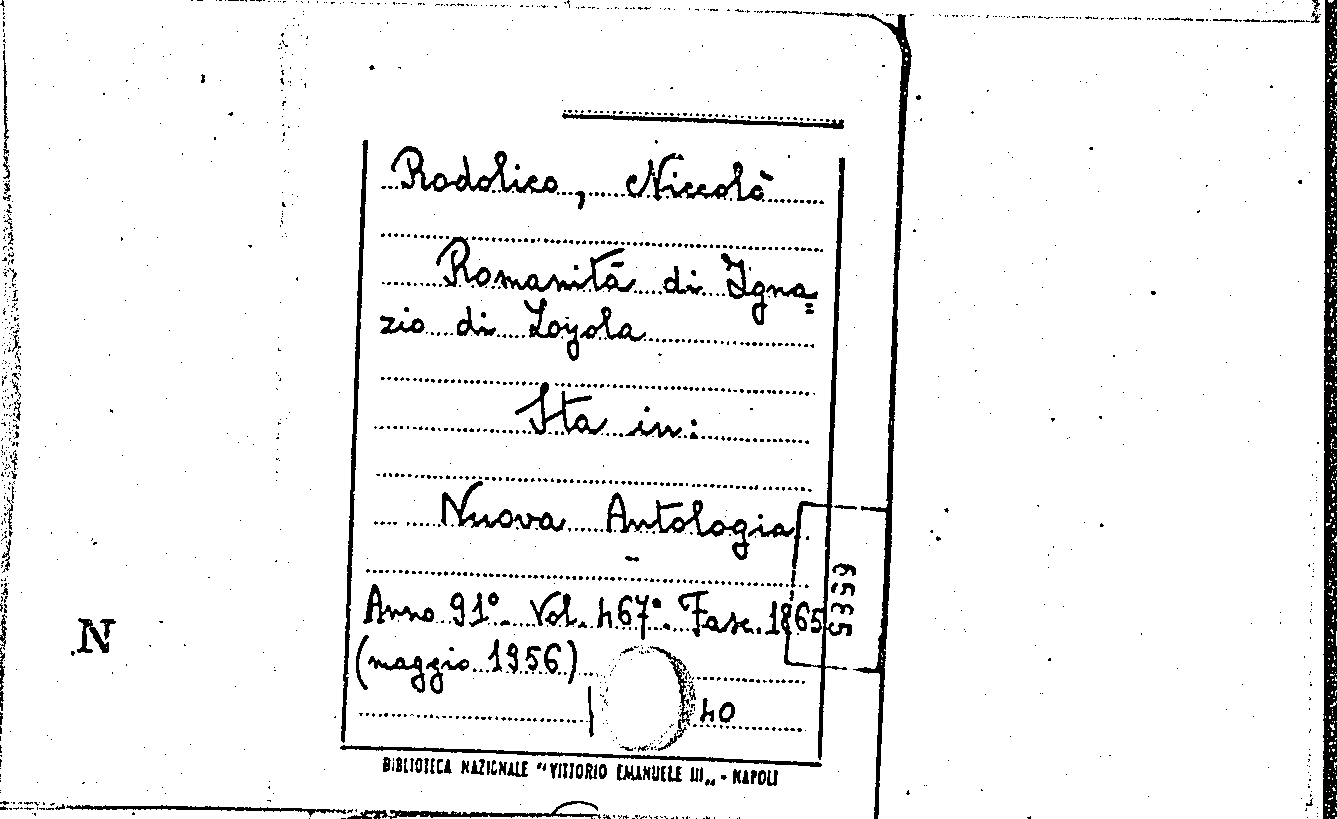 Rodolico, Niccolò
Romanità di Igna=
zio di Loyola
Sta in:
Nuova Antologia
Anno 91°. Vol. 467°. Fasc. 1865
(maggio 1956)
40
5359
N
BIBLIOTECA NAZIONALE "VITTORIO EMANUELE III„ - NAPOLI